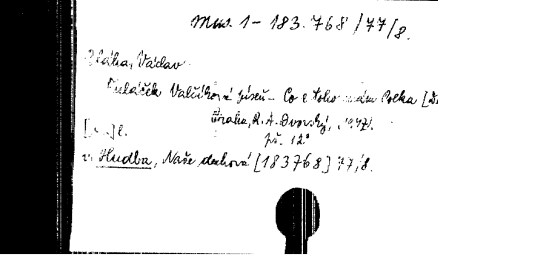 Mus. 1 - 183.768/77/8.
Bláha, Václav
Tuláček Valčíková píseň - Co z toho mám Polka
Praha, R. A. Dvorský, 1947.
12°
v. Hudba, Naše dechová [183768] 77/8.